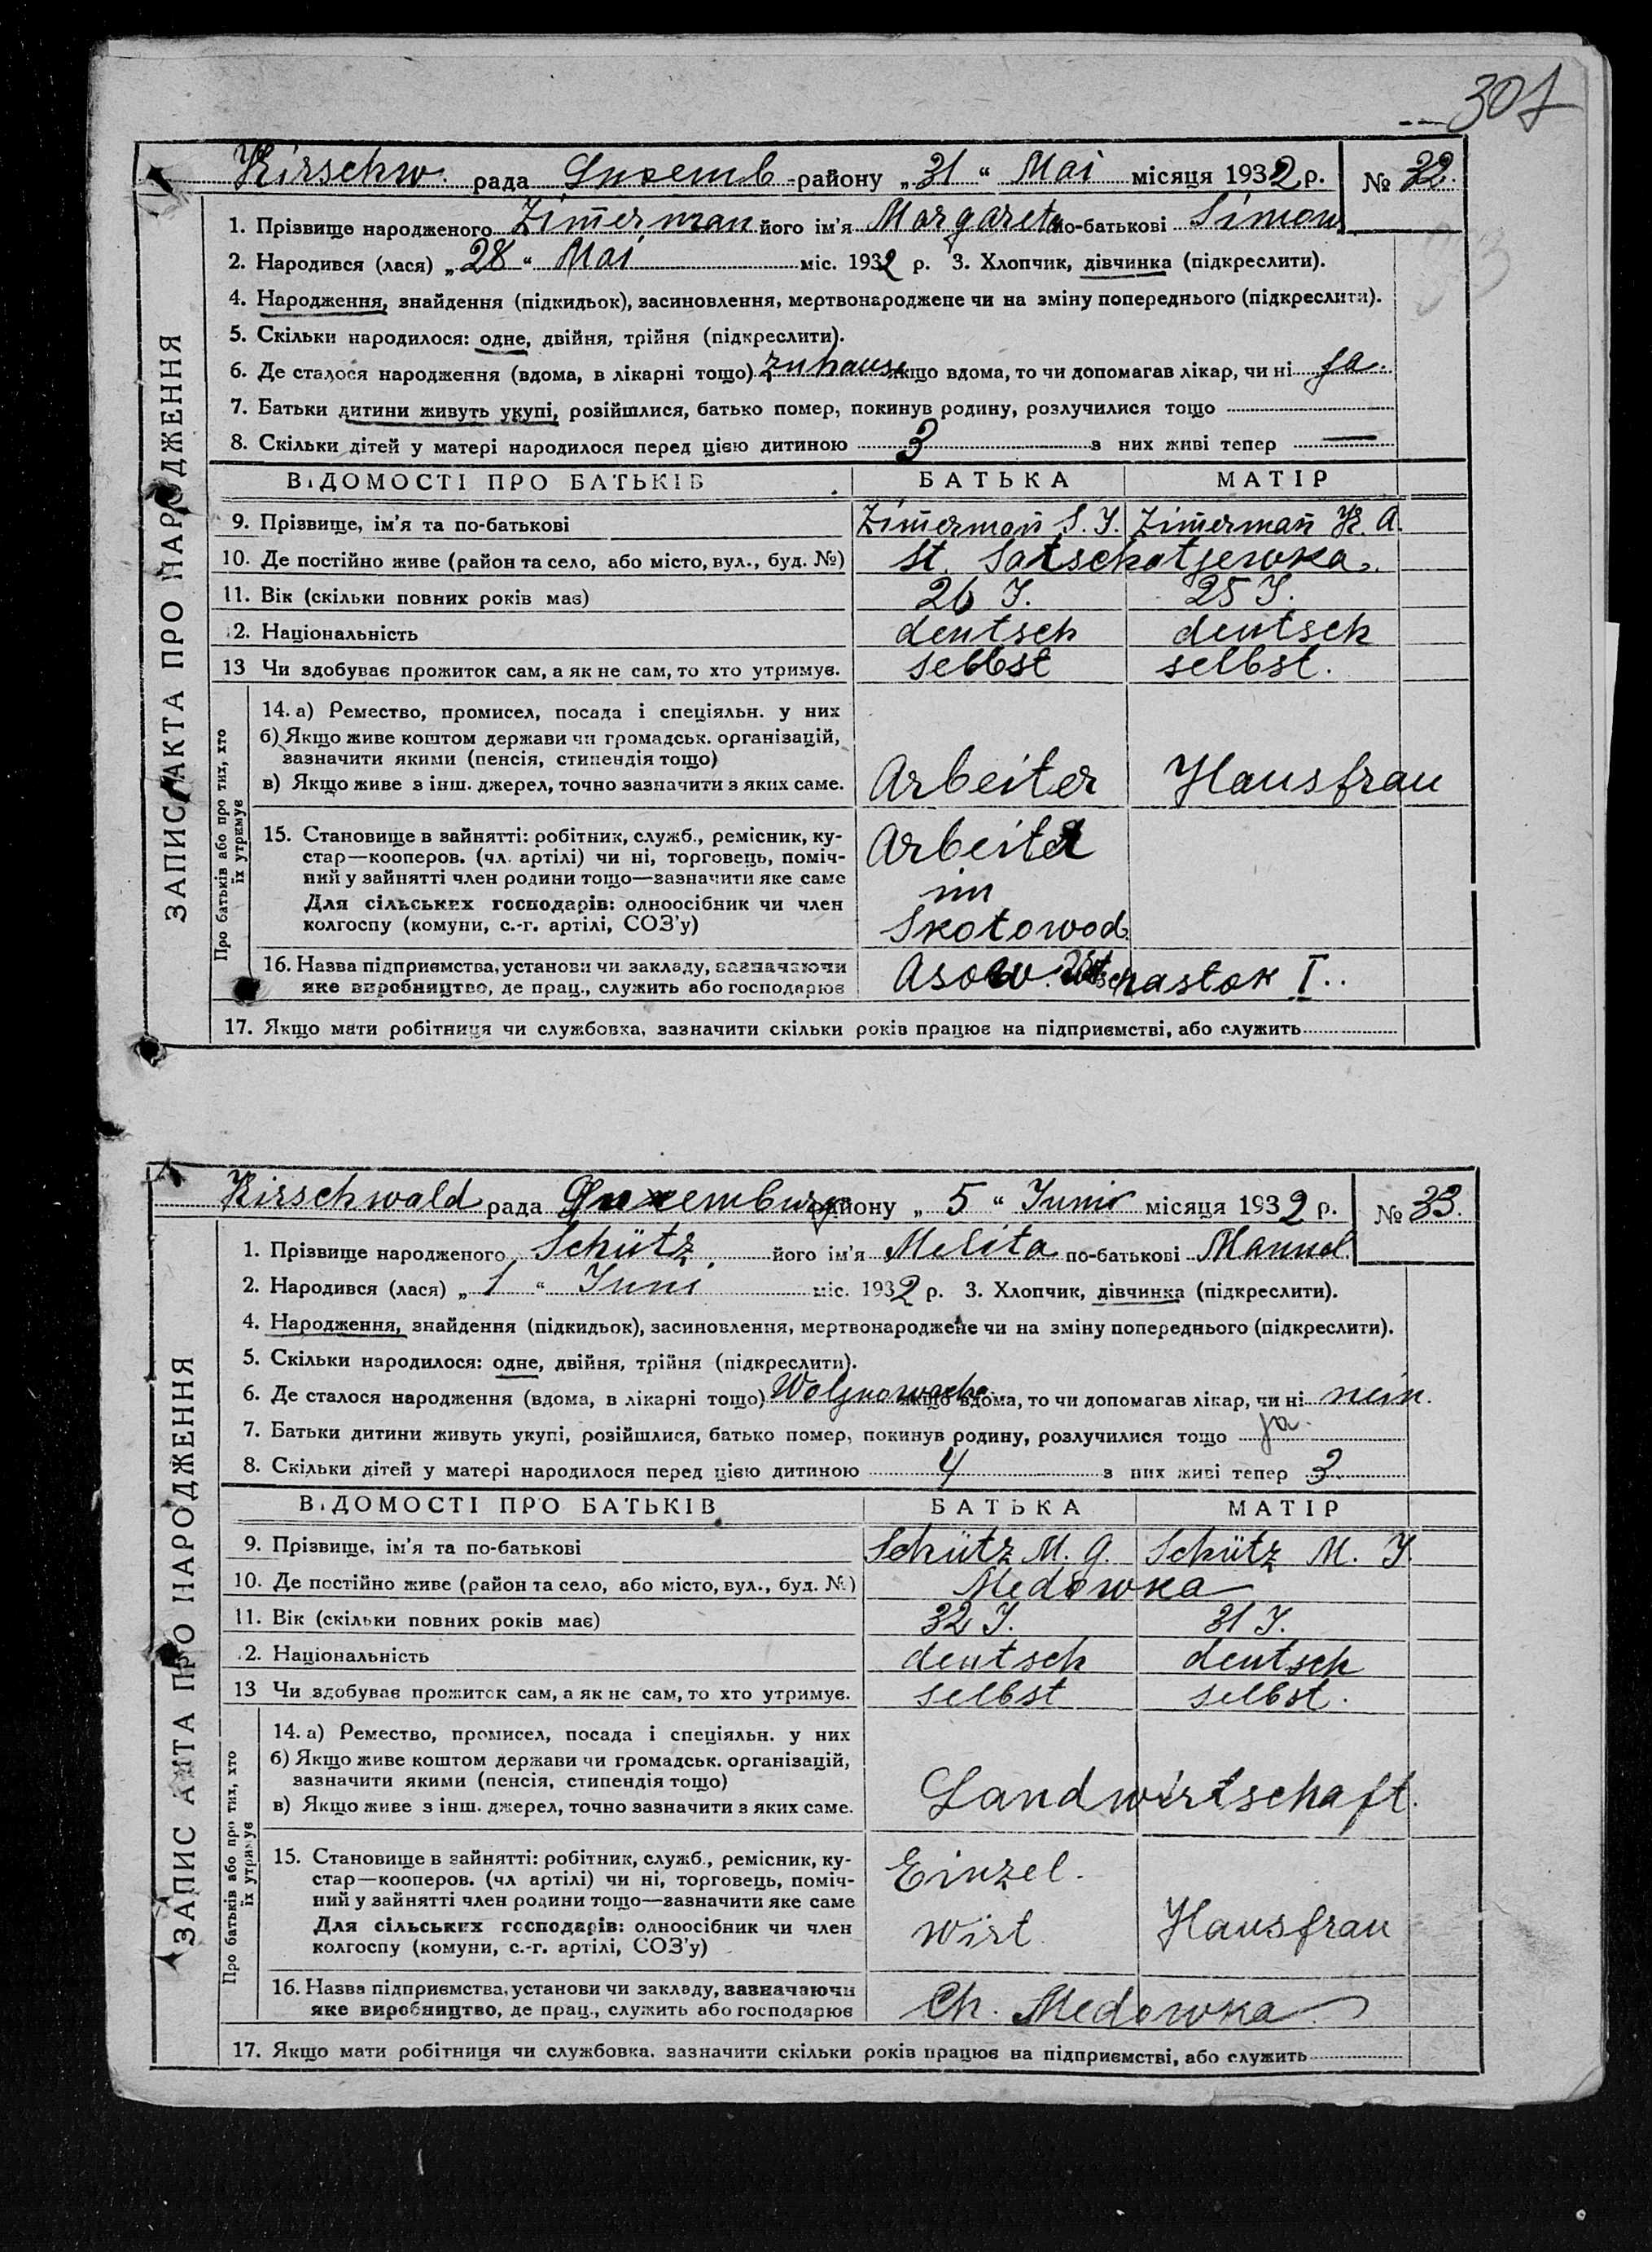 301
Kirschw. рада Luxemb району „31“ Mai місяця 1932 р. № 32.
ЗАПИС АКТА ПРО НАРОДЖЕННЯ
1. Прізвище народженого Zim̄erman його ім'я Margareta по-батькові Simon
2. Народився (лася) „28“ Mai міс. 1932 р. 3. Хлопчик, дівчинка (підкреслити).
4. Народження, знайдення (підкидьок), засиновлення, мертвонароджене чи на зміну попереднього (підкреслити).
5. Скільки народилося: одне, двійня, трійня (підкреслити).
6. Де сталося народження (вдома, в лікарні тощо) zuhause якщо вдома, то чи допомагав лікар, чи ні ja.
7. Батьки дитини живуть укупі, розійшлися, батько помер, покинув родину, розлучилися тощо
8. Скільки дітей у матері народилося перед цією дитиною 3 з них живі тепер —
ВІДОМОСТІ ПРО БАТЬКІВ БАТЬКА МАТІР
9. Прізвище, ім'я та по-батькові Zim̄erman̄ S. J. Zim̄erman̄ K. A.
10. Де постійно живе (район та село, або місто, вул., буд. №) St. Satschatjewka.
11. Вік (скільки повних років має) 26 J. 25 J.
12. Національність deutsch deutsch
13 Чи здобуває прожиток сам, а як не сам, то хто утримує. selbst selbst.
Про батьків або про тих, хто їх утримує
14. а) Ремество, промисел, посада і спеціяльн. у них
б) Якщо живе коштом держави чи громадськ. організацій,
зазначити якими (пенсія, стипендія тощо)
в) Якщо живе з інш. джерел, точно зазначити з яких саме. Arbeiter Hausfrau
15. Становище в зайнятті: робітник, служб., ремісник, ку-
стар—кооперов. (чл. артілі) чи ні, торговець, поміч-
ний у зайнятті член родини тощо—зазначити яке саме
Для сільських господарів: одноосібник чи член
колгоспу (комуни, с.-г. артілі, СОЗ'у)
Arbeiter
im
Skotowod.
16. Назва підприємства, установи чи закладу, зазначаючи
яке виробництво, де прац., служить або господарює Asow. Utschastok I..
17. Якщо мати робітниця чи службовка, зазначити скільки років працює на підприємстві, або служить
Kirschwald рада Luxemburg району „5“ Juni місяця 1932 р. № 33.
ЗАПИС АКТА ПРО НАРОДЖЕННЯ
1. Прізвище народженого Schütz його ім'я Melita по-батькові Manuel.
2. Народився (лася) „1“ Juni міс. 1932 р. 3. Хлопчик, дівчинка (підкреслити).
4. Народження, знайдення (підкидьок), засиновлення, мертвонароджене чи на зміну попереднього (підкреслити).
5. Скільки народилося: одне, двійня, трійня (підкреслити).
6. Де сталося народження (вдома, в лікарні тощо) якщо вдома, то чи допомагав лікар, чи ні nein.
7. Батьки дитини живуть укупі, розійшлися, батько помер, покинув родину, розлучилися тощо ja.
8. Скільки дітей у матері народилося перед цією дитиною 4 з них живі тепер 3.
ВІДОМОСТІ ПРО БАТЬКІВ БАТЬКА МАТІР
9. Прізвище, ім'я та по-батькові Schütz M. G. Schütz M. J.
10. Де постійно живе (район та село, або місто, вул., буд. №) Medowka
11. Вік (скільки повних років має) 32 J. 31 J.
12. Національність deutsch deutsch
13 Чи здобуває прожиток сам, а як не сам, то хто утримує. selbst selbst.
Про батьків або про тих, хто їх утримує
14. а) Ремество, промисел, посада і спеціяльн. у них
б) Якщо живе коштом держави чи громадськ. організацій,
зазначити якими (пенсія, стипендія тощо)
в) Якщо живе з інш. джерел, точно зазначити з яких саме. Landwirtschaft.
15. Становище в зайнятті: робітник, служб., ремісник, ку-
стар—кооперов. (чл артілі) чи ні, торговець, поміч-
ний у зайнятті член родини тощо—зазначити яке саме
Для сільських господарів: одноосібник чи член
колгоспу (комуни, с.-г. артілі, СОЗ'у)
Einzel.
wirt. Hausfrau
16. Назва підприємства, установи чи закладу, зазначаючи
яке виробництво, де прац., служить або господарює Ch. Medowka
17. Якщо мати робітниця чи службовка. зазначити скільки років працює на підприємстві, або служить